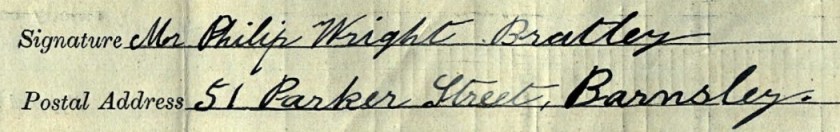 Signature Mr Philip Wright Bratley
Postal Address 51 Parker Street, Barnsley.